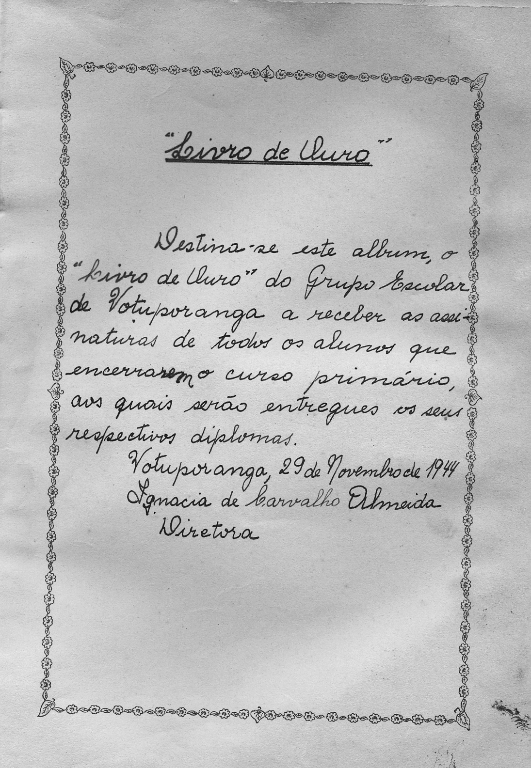 "Livro de Ouro"
Destina-se este album, o
"Livro de Ouro" do Grupo Escolar
de Votuporanga a receber as assi-
naturas de todos os alunos que
encerrarem o curso primário,
aos quais serão entregues os seus
respectivos diplomas.
Votuporanga, 29 de Novembro de 1944
Ignacia de Carvalho Almeida
Diretora